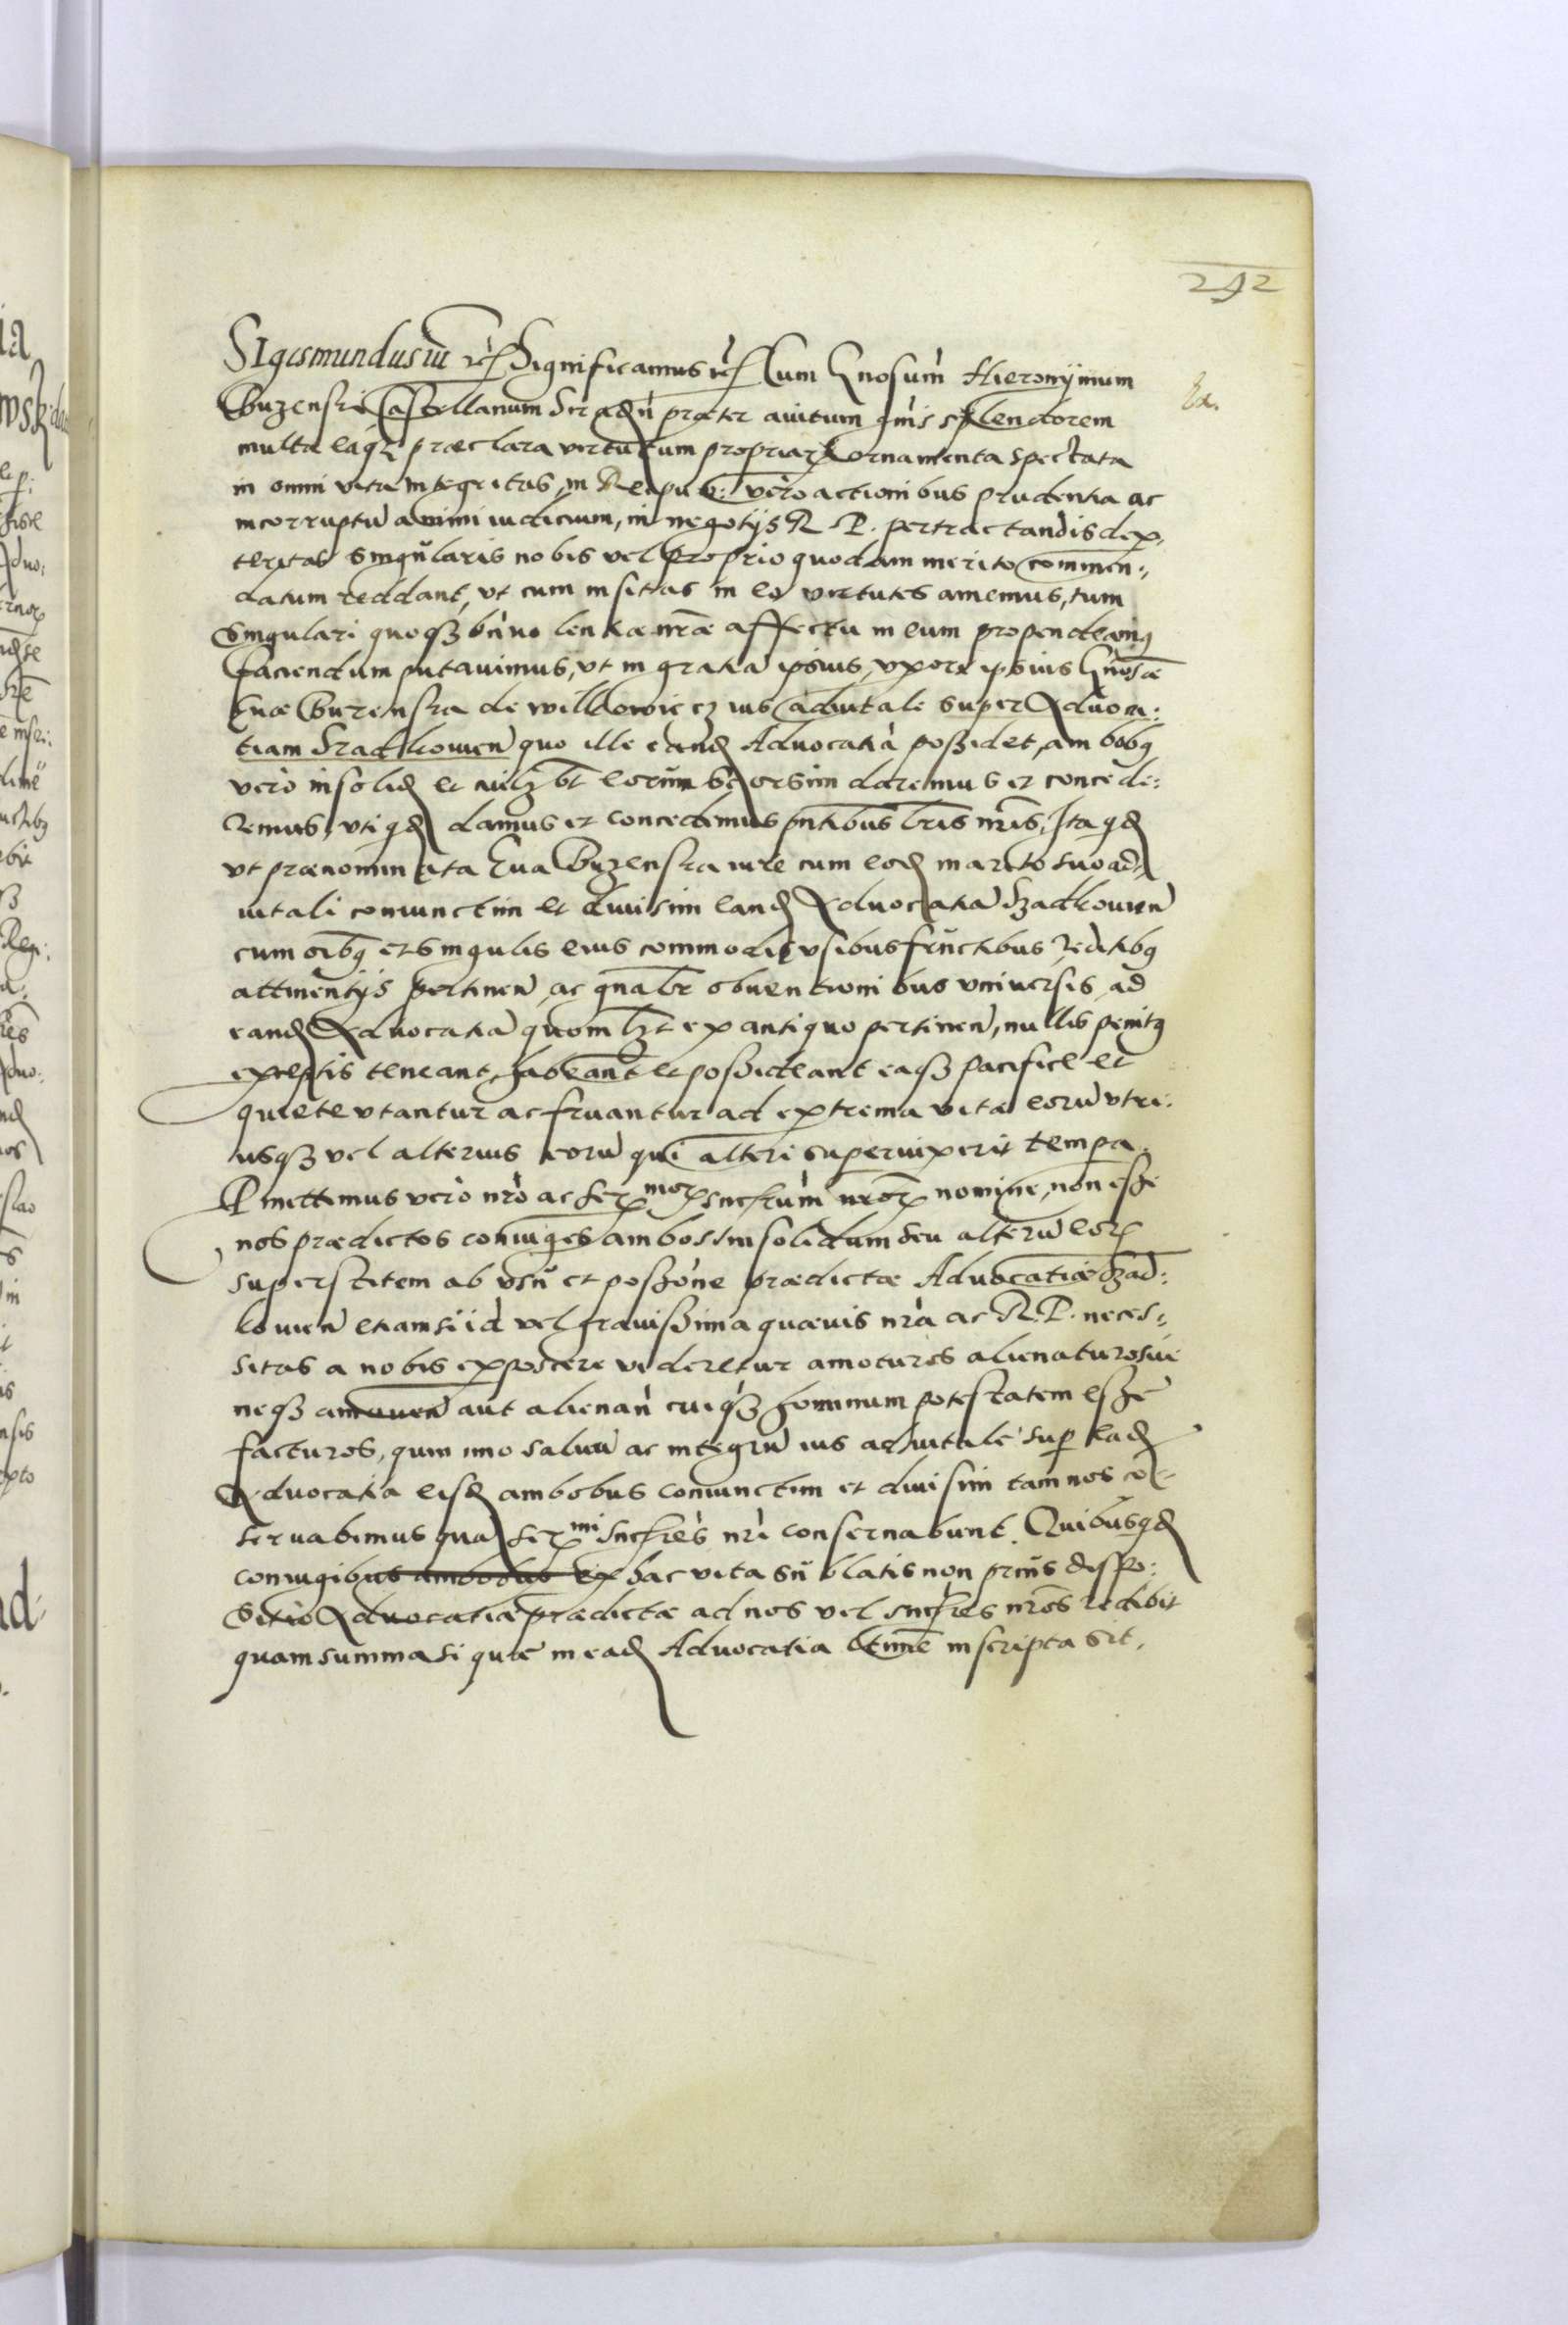 292
Sigismundus iii etc Significamus etc Cum Gnosum Hieronymum
Ex.
Buzenski Castellanum Siradn praeter avitum gnis splendorem
multa eaq3 praeclara virtutum propriar ornamenta spectata
in omni vita integritas, in Reipub: vero actionibus prudentia ac
incorruptu animi iudicium, in negotijs R P. pertractandis dex,
teritas singularis nobis vel proprio quodam merito commen:,
datum reddant, vt cum insitas in eo virtutes amemus, tum
singulari quoq3 bnuolentiae nrae affectu in eum propendeamq
faciendum putavimus, vt in gratia ipsius, vxori ipsius Gnosae
Euae Buzenska de Wilkowic cz ius aduitale super Aduoca:
tiam Szadkouien quo ille eand Aduocatia possidet, ambobq
vero insolid et cuilz bt eorum seorsim daremus et concede:
remus, vti qd damus et concedimus pntibus lris nris, Ita qd
vt praenominata Eua Buzenska iure cum eod marito suo ad
uitali coniunctim et diuisim eand Aduocatia Szadkouien
cum oibq et singulis eius commodis vsibus fructibus reditibq
attinentijs pertinen ac gnalr obuentionibus vniuersis ad
eand Aduocatia quomlzt ex antiquo pertinen, nullis penitq
exceptis teneant, habeant et possideant eaq3 pacifice et
quiete vtantur ac fruantur ad extrema vitae eoru vtri:
usq3 vel alterius eoru qui alteri superuixerit tempa.
Pmittimus vero nro ac Ser mor sucsrum nror nomine, non esse
nos praedictos coniuges ambos insolidum seu alteru eor
superstitem ab vsu et possone praedictae Aduocatiae Szad:
kouien etiamsi id vel gravissima quaevis nra ac R.P. neces:
sitas a nobis exposcere videretur amoturos alienaturosue
neq3 amouen aut alienan cuiq3 hominum potestatem esse
facturos, quin imo saluu ac integru ius aduitale sup ead
Aduocatia eisd ambobus coniunctim et diuisim tam nos co-
seruabimus qua Ser mi sucsres nri conseruabunt. Quibus qd
coniugibus ambobus ex hac vita sublatis non prius dispo:
sitio Aduocatiae praedictae ad nos vel sucsres nros redibit
quam summa si quae in ead Aduocatia ltime inscripta sit.